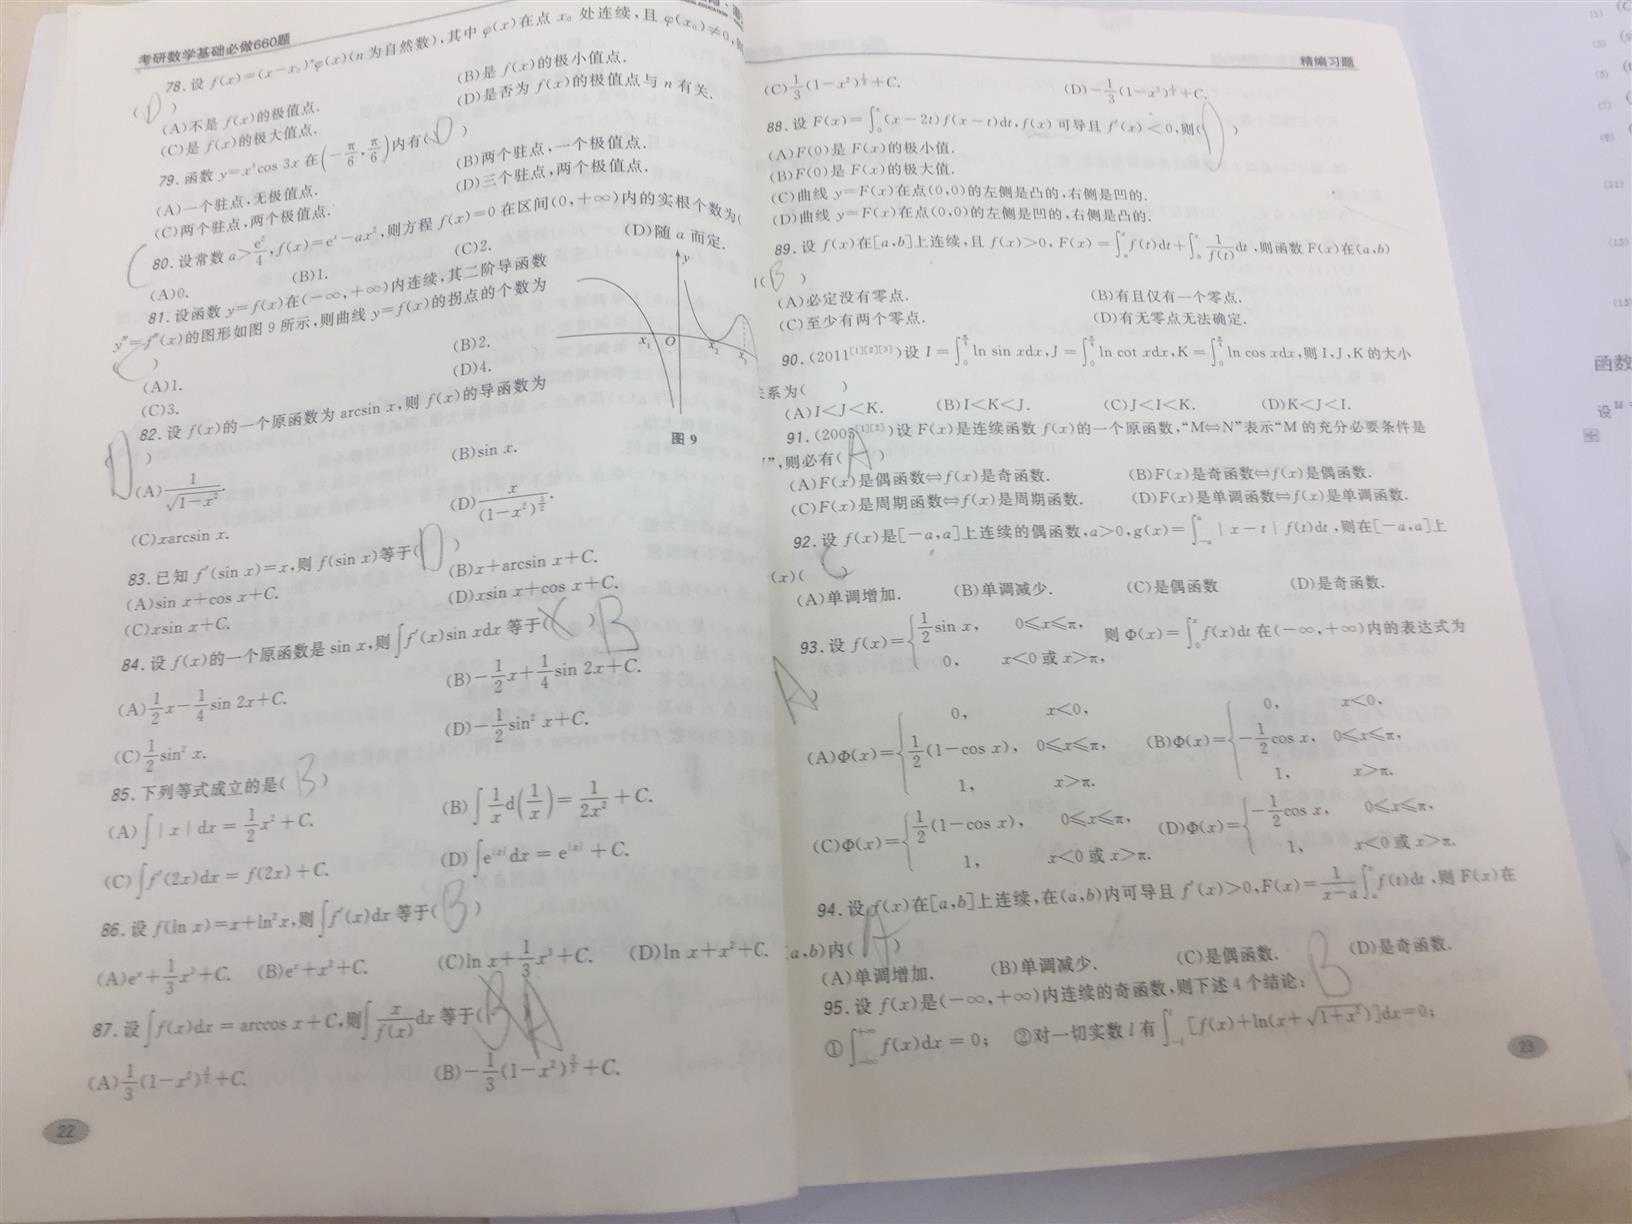 考研数学基础必做660题
78. 设 f(x)=(x-x₀)ⁿφ(x)(n 为自然数),其中 φ(x)在点 x₀ 处连续,且 φ(x₀)≠0,则
( D )
(A)不是 f(x)的极值点.
(B)是 f(x)的极小值点.
(C)是 f(x)的极大值点.
(D)是否为 f(x)的极值点与 n 有关.
79. 函数 y=x³cos 3x 在(-π/6,π/6)内有( D )
(A)一个驻点,无极值点.
(B)两个驻点,一个极值点.
(C)两个驻点,两个极值点.
(D)三个驻点,两个极值点.
C
80. 设常数 a>e²/4,f(x)=eˣ-ax²,则方程 f(x)=0 在区间(0,+∞)内的实根个数为(
(A)0.
(B)1.
(C)2.
(D)随 a 而定.
81. 设函数 y=f(x)在(-∞,+∞)内连续,其二阶导函数
y″=f″(x)的图形如图 9 所示,则曲线 y=f(x)的拐点的个数为
( C )
(A)1.
(B)2.
(C)3.
(D)4.
y
x₁ O x₂ x₃
图 9
82. 设 f(x)的一个原函数为 arcsin x,则 f(x)的导函数为
( D )
(A)1/√(1-x²).
(B)sin x.
(C)xarcsin x.
(D)x/(1-x²)^(3/2).
83. 已知 f′(sin x)=x,则 f(sin x)等于( D )
(A)sin x+cos x+C.
(B)x+arcsin x+C.
(C)xsin x+C.
(D)xsin x+cos x+C.
84. 设 f(x)的一个原函数是 sin x,则∫f′(x)sin xdx 等于( ) B
(A)1/2x-1/4sin 2x+C.
(B)-1/2x+1/4sin 2x+C.
(C)1/2sin² x.
(D)-1/2sin² x+C.
85. 下列等式成立的是( B )
(A)∫|x|dx=1/2x²+C.
(B)∫1/x d(1/x)=1/(2x²)+C.
(C)∫f′(2x)dx=f(2x)+C.
(D)∫e^|x|dx=e^|x|+C.
86. 设 f(ln x)=x+ln²x,则∫f′(x)dx 等于( B )
(A)eˣ+1/3x³+C.
(B)eˣ+x²+C.
(C)ln x+1/3x³+C.
(D)ln x+x²+C.
87. 设∫f(x)dx=arccos x+C,则∫x/f(x)dx 等于( A
(A)1/3(1-x²)^
+C.
(B)-1/3(1-x²)^
+C.
22
精编习题
(C)1/3(1-x²)^
+C.
(D)-1/3(1-x²)^
+C.
88. 设 F(x)=∫₀ˣ(x-2t)f(x-t)dt,f(x)可导且 f′(x)<0,则( D )
(A)F(0)是 F(x)的极小值.
(B)F(0)是 F(x)的极大值.
(C)曲线 y=F(x)在点(0,0)的左侧是凸的,右侧是凹的.
(D)曲线 y=F(x)在点(0,0)的左侧是凹的,右侧是凸的.
89. 设 f(x)在[a,b]上连续,且 f(x)>0,F(x)=∫ₐˣf(t)dt+∫ᵇˣ1/f(t)dt,则函数 F(x)在(a,b)
( B )
(A)必定没有零点.
(B)有且仅有一个零点.
(C)至少有两个零点.
(D)有无零点无法确定.
90. (2011[1][2][3])设 I=∫₀^(π/4)ln sin xdx,J=∫₀^(π/4)ln cot xdx,K=∫₀^(π/4)ln cos xdx,则 I,J,K 的大小
关系为( )
(A)I<J<K.
(B)I<K<J.
(C)J<I<K.
(D)K<J<I.
91. (2005[1][2])设 F(x)是连续函数 f(x)的一个原函数,“M⇔N”表示“M 的充分必要条件是
”,则必有( A )
(A)F(x)是偶函数⇔f(x)是奇函数.
(B)F(x)是奇函数⇔f(x)是偶函数.
(C)F(x)是周期函数⇔f(x)是周期函数.
(D)F(x)是单调函数⇔f(x)是单调函数.
92. 设 f(x)是[-a,a]上连续的偶函数,a>0,g(x)=∫₋ₐᵃ|x-t|f(t)dt,则在[-a,a]上
(x)( C )
(A)单调增加.
(B)单调减少.
(C)是偶函数
(D)是奇函数.
93. 设 f(x)={1/2sin x, 0≤x≤π,
0, x<0 或 x>π,
则 Φ(x)=∫₀ˣf(t)dt 在(-∞,+∞)内的表达式为
A
(A)Φ(x)={0, x<0,
1/2(1-cos x), 0≤x≤π,
1, x>π.
(B)Φ(x)={0, x<0,
-1/2cos x, 0≤x≤π,
1, x>π.
(C)Φ(x)={1/2(1-cos x), 0≤x≤π,
1, x<0 或 x>π.
(D)Φ(x)={-1/2cos x, 0≤x≤π,
1, x<0 或 x>π.
94. 设 f(x)在[a,b]上连续,在(a,b)内可导且 f′(x)>0,F(x)=1/(x-a)∫ₐˣf(t)dt,则 F(x)在
(a,b)内( A )
(A)单调增加.
(B)单调减少.
(C)是偶函数.
(D)是奇函数.
95. 设 f(x)是(-∞,+∞)内连续的奇函数,则下述 4 个结论: B
①∫₋∞^(+∞)f(x)dx=0; ②对一切实数 l 有∫₋ₗˡ[f(x)+ln(x+√(1+x²))]dx=0;
23
函数
设